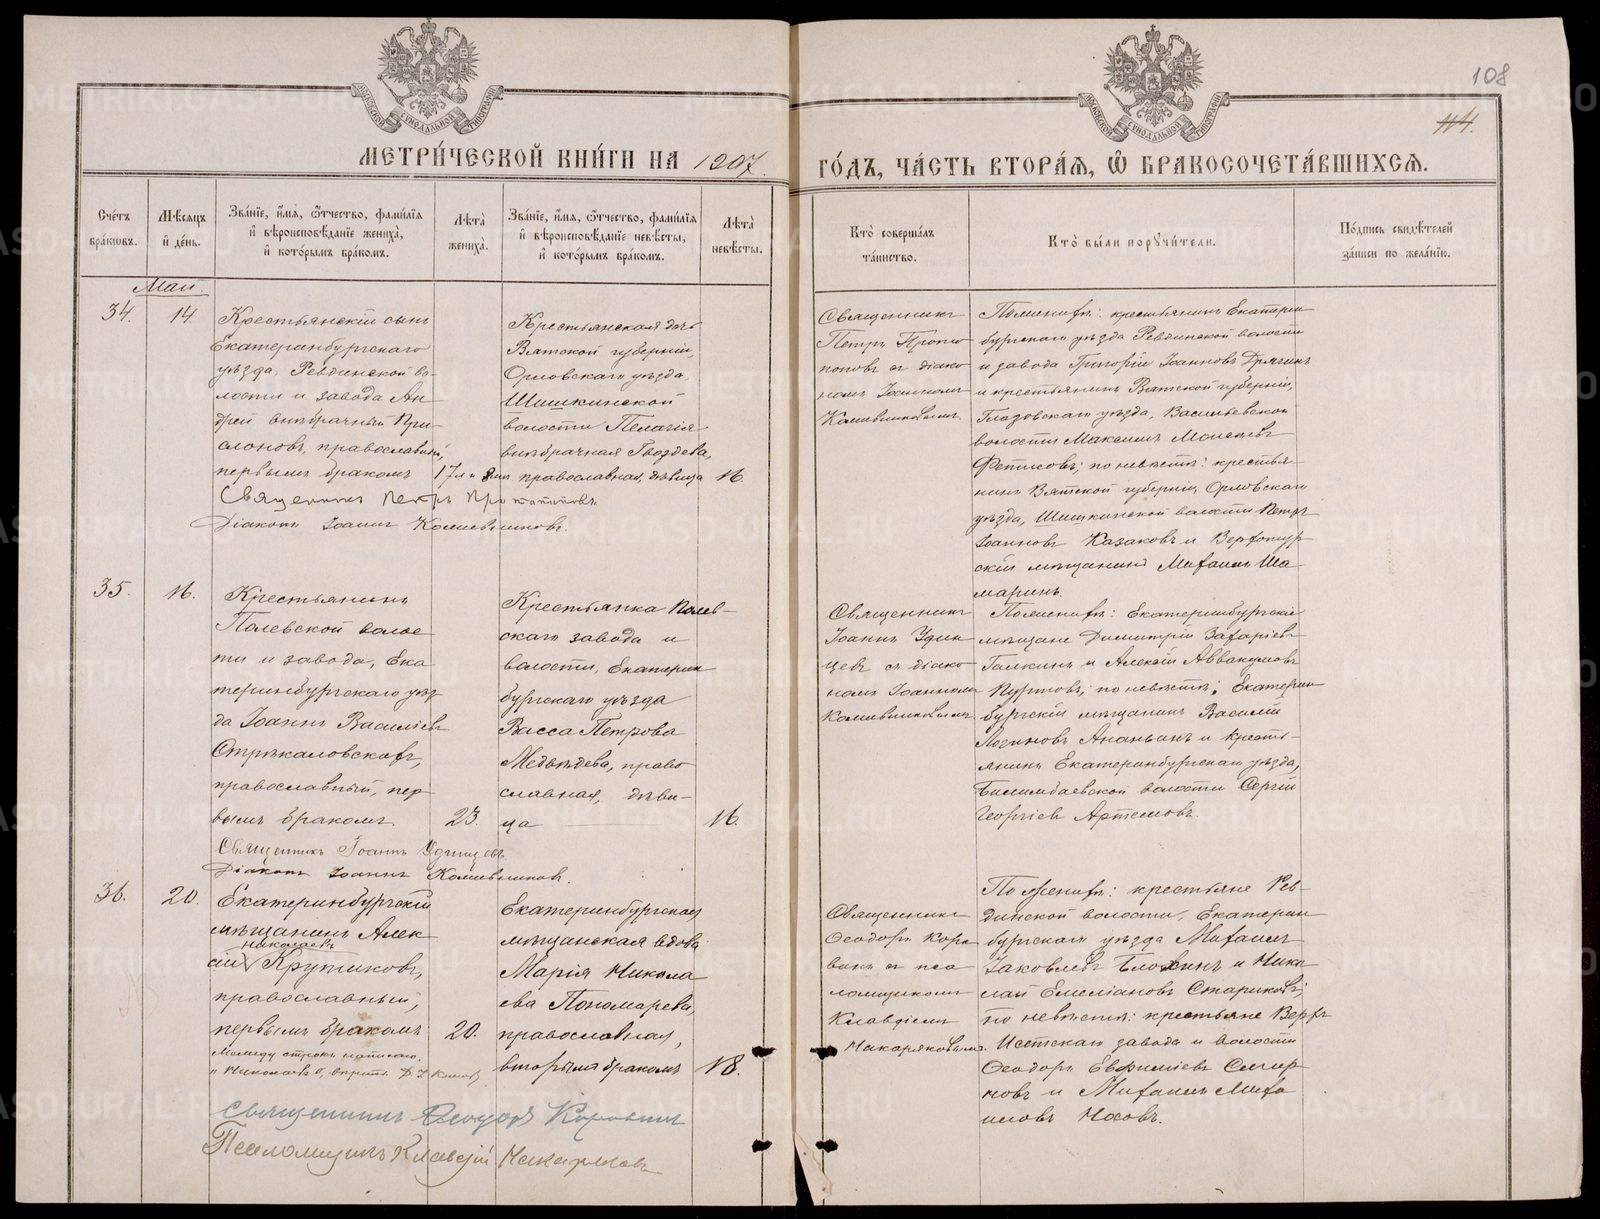 108
114.
МЕТРИ́ЧЕСКОЙ КНИ́ГИ НА 1907. ГО́ДЪ, ЧА́СТЬ ВТОРА́Я, Ѡ БРАКОСОЧЕТА́ВШИХСЯ.
Сче́тъ бра́кωвъ.
Мѣ́сяцъ и҆ де́нь.
Зва́нїе, и҆́мя, ѻ҆́тчество, фами́лїя и҆ вѣроисповѣ́данїе жениха̀, и҆ кото́рымъ бра́комъ.
Лѣта̀ жениха̀.
Зва́нїе, и҆́мя, ѻ҆́тчество, фами́лїя и҆ вѣроисповѣ́данїе невѣ́сты, и҆ кото́рымъ бра́комъ.
Лѣта̀ невѣ́сты.
Кто̀ соверша́лъ та́инство.
Кто̀ бы́ли порꙋчи́тели.
По́дпись свидѣ́телей за́писи по жела́нїю.
Май.
34.
14.
Крестьянскій сынъ
Екатеринбургскаго
уѣзда, Ревдинской во-
лости и завода Ан
дрей внѣбрачный
православный,
первымъ бракомъ
17
Крестьянская дочь
Вятской губерніи,
Орловскаго уѣзда,
Шишкинской
волости Пелагія
внѣбрачная Гвоздева,
православная, дѣвица
16.
Священникъ
Петръ Прото
поповъ съ діако
номъ Іоанномъ
По женихѣ: крестьянинъ Екатерин
бургскаго уѣзда Ревдинской волости
и завода Григорій Іоанновъ Дрягинъ
и крестьянинъ Вятской губерніи,
Глазовскаго уѣзда, Васильевской
волости Максимъ Моисеевъ
Фетисовъ; по невѣстѣ: крестья-
нинъ Вятской губерніи, Орловскаго
уѣзда, Шишкинской волости Петръ
Іоанновъ Казаковъ и Верхотур
скій мѣщанинъ Михаилъ Ша-
маринъ.
Священникъ Петръ Протопоповъ
Діаконъ Іоаннъ
35.
16.
Крестьянинъ
Полевской волос
ти и завода, Ека
теринбургскаго уѣз
да Іоаннъ Василіевъ
Стрѣкаловскихъ,
православный, пер-
вымъ бракомъ
23.
Крестьянка Полев-
скаго завода и
волости, Екатерин
бургскаго уѣзда
Васса Петрова
Медвѣдева, право
славная, дѣви-
ца
16.
Священникъ
Іоаннъ Удин
цевъ съ діако
номъ Іоанномъ
По женихѣ: Екатеринбургскіе
мѣщане Димитрій Захаріевъ
Галкинъ и Алексій Аввакумовъ
по невѣстѣ: Екатерин
бургскій мѣщанинъ Василій
Логиновъ Ананьинъ и кресть-
янинъ Екатеринбургскаго уѣзда,
Билимбаевской волости Сергій
Георгіевъ Артемовъ.
Священникъ Іоаннъ Удинцевъ
Діаконъ Іоаннъ
36.
20.
Екатеринбургскій
мѣщанинъ Алек
Николаевъ
сій Крутиковъ,
православный,
первымъ бракомъ
20.
Между строкъ написано:
"Николаевъ", вѣрить.
Екатеринбургская
мѣщанская вдова
Марія Никола
ева Пономарева,
православная,
вторымъ бракомъ
18.
Священникъ
Ѳеодоръ Коро
винъ съ пса
ломщикомъ
Клавдіемъ
Макаряковымъ.
По женихѣ: крестьяне Рев-
динской волости, Екатерин
бургскаго уѣзда Михаилъ
Іаковлевъ Блохинъ и Нико
лай Емеліановъ Стариковъ;
по невѣстѣ: крестьяне Верхъ
Исетскаго завода и волости
Ѳеодоръ Евфиміевъ Смир
новъ и Михаилъ Миха
иловъ Носовъ.
Священникъ Ѳеодоръ Коровинъ
Псаломщикъ Клавдій Макаряковъ
METRIKI.GASO-URAL.RU